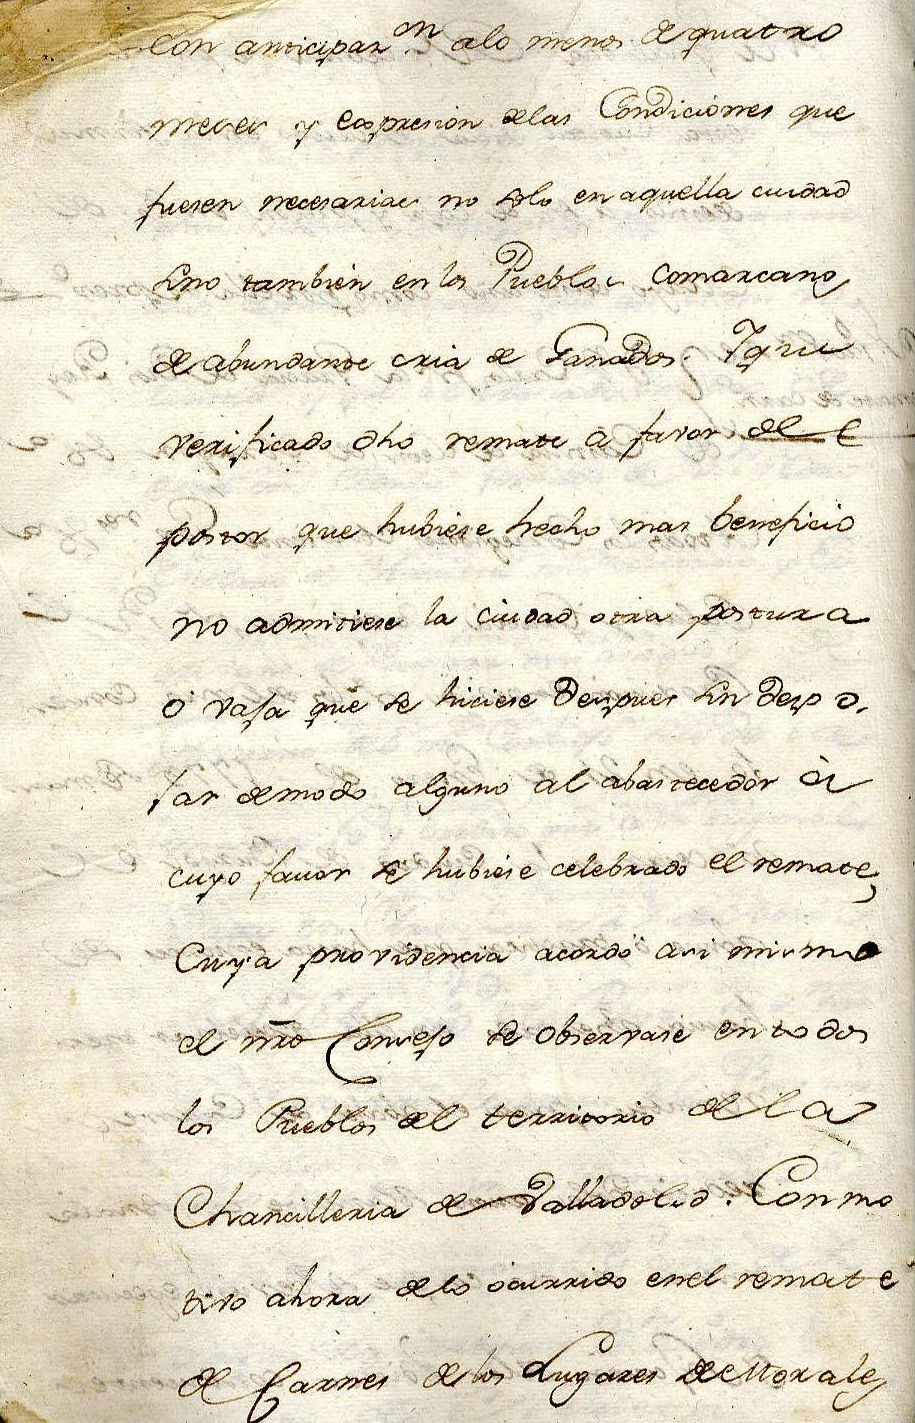 con anticipazon alo menos de quatro
meses y expresion delas Condiciones que
fuesen necesarias no solo en aquella ciudad
sino tambien en los Pueblos comarcanos
de abundante cria de Ganados. Y que
verificado dho remate a favor del
postor que hubiese hecho mas beneficio
no admitiese la ciudad otra postura
ò vaja que se hiciese despues sin despo-
jar de modo alguno al abastecedor à
cuyo favor se hubiese celebrado el remate,
Cuya providencia acordó asi mismo
el nro Consejo se observase en todos
los Pueblos del territorio de la
Chancilleria de Valladolid. Con mo
tivo ahora delo ocurrido enel remate
de Carnes delos Lugares de Morales